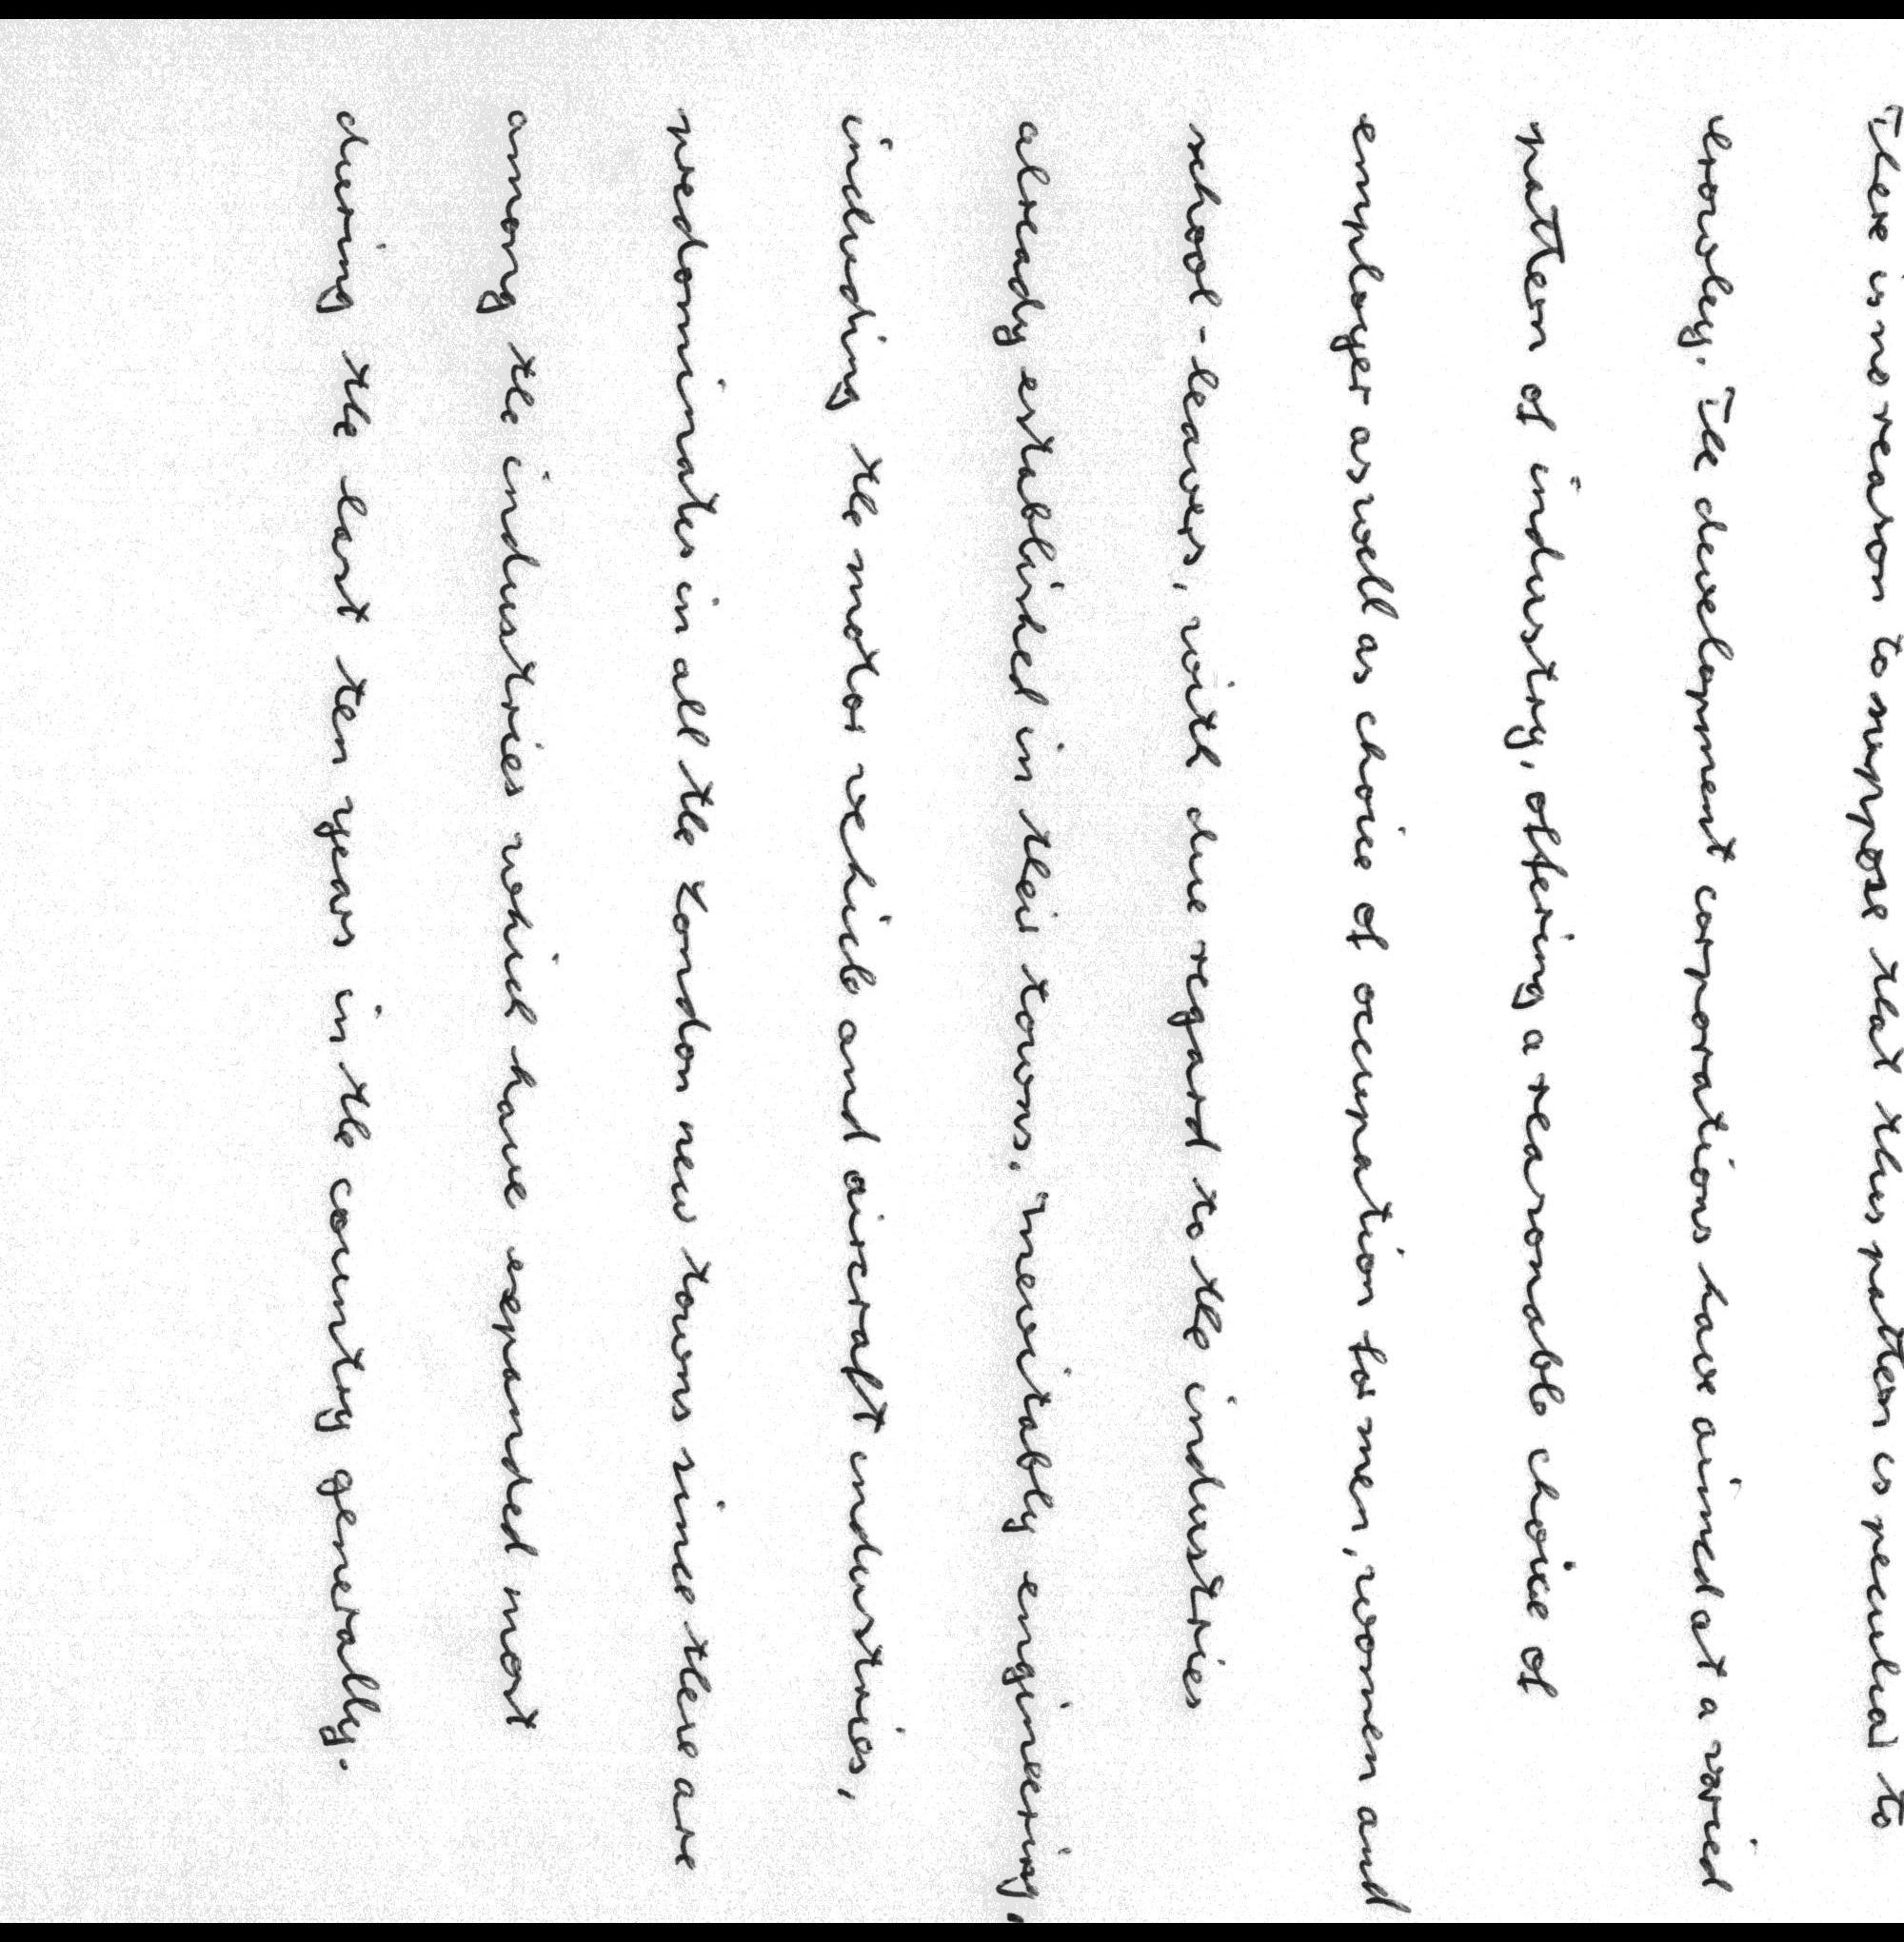 There is no reason to suppose that this pattern is peculiar to
Crowley. The development corporations have aimed at a varied
pattern of industry, offering a reasonable choice of
employer as well as choice of occupation for men, women and
school-leavers, with due regard to the industries
already established in their towns. Inevitably engineering,
including the motor vehicle and aircraft industries,
predominates in all the London new towns since these are
among the industries which have expanded most
during the last ten years in the country generally.